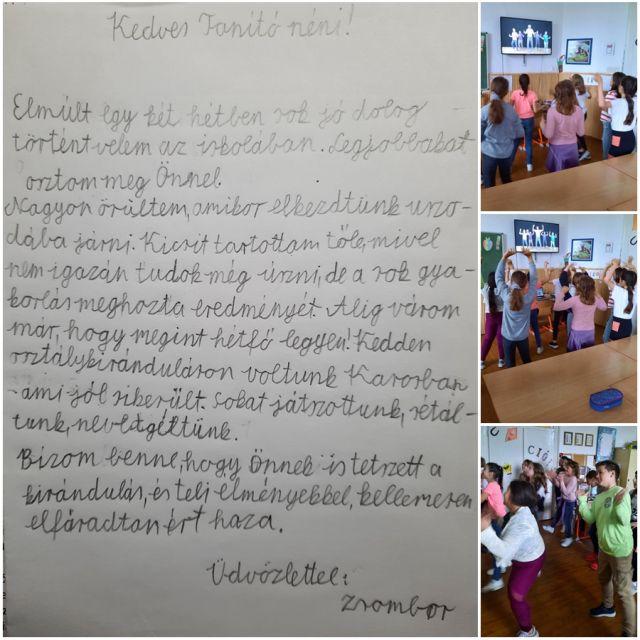 Kedves Tanító néni!
Elmúlt egy két hétben sok jó dolog
történt velem az iskolában. Legjobbakat
osztom meg Önnel.
Nagyon örültem, amikor elkezdtünk uszo-
dába járni. Kicsit tartottam tőle, mivel
nem igazán tudok még úszni, de a sok gya-
korlás meghozta eredményét. Alig várom
már, hogy megint hétfő legyen! Kedden
osztálykiránduláson voltunk Karosban
- ami jól sikerült. Sokat játszottunk, sétál-
tunk, nevetgéltünk.
Bízom benne, hogy Önnek is tetszett a
kirándulás, és teli élményekkel, kellemesen
elfáradtan ért haza.
Üdvözlettel:
Zsombor